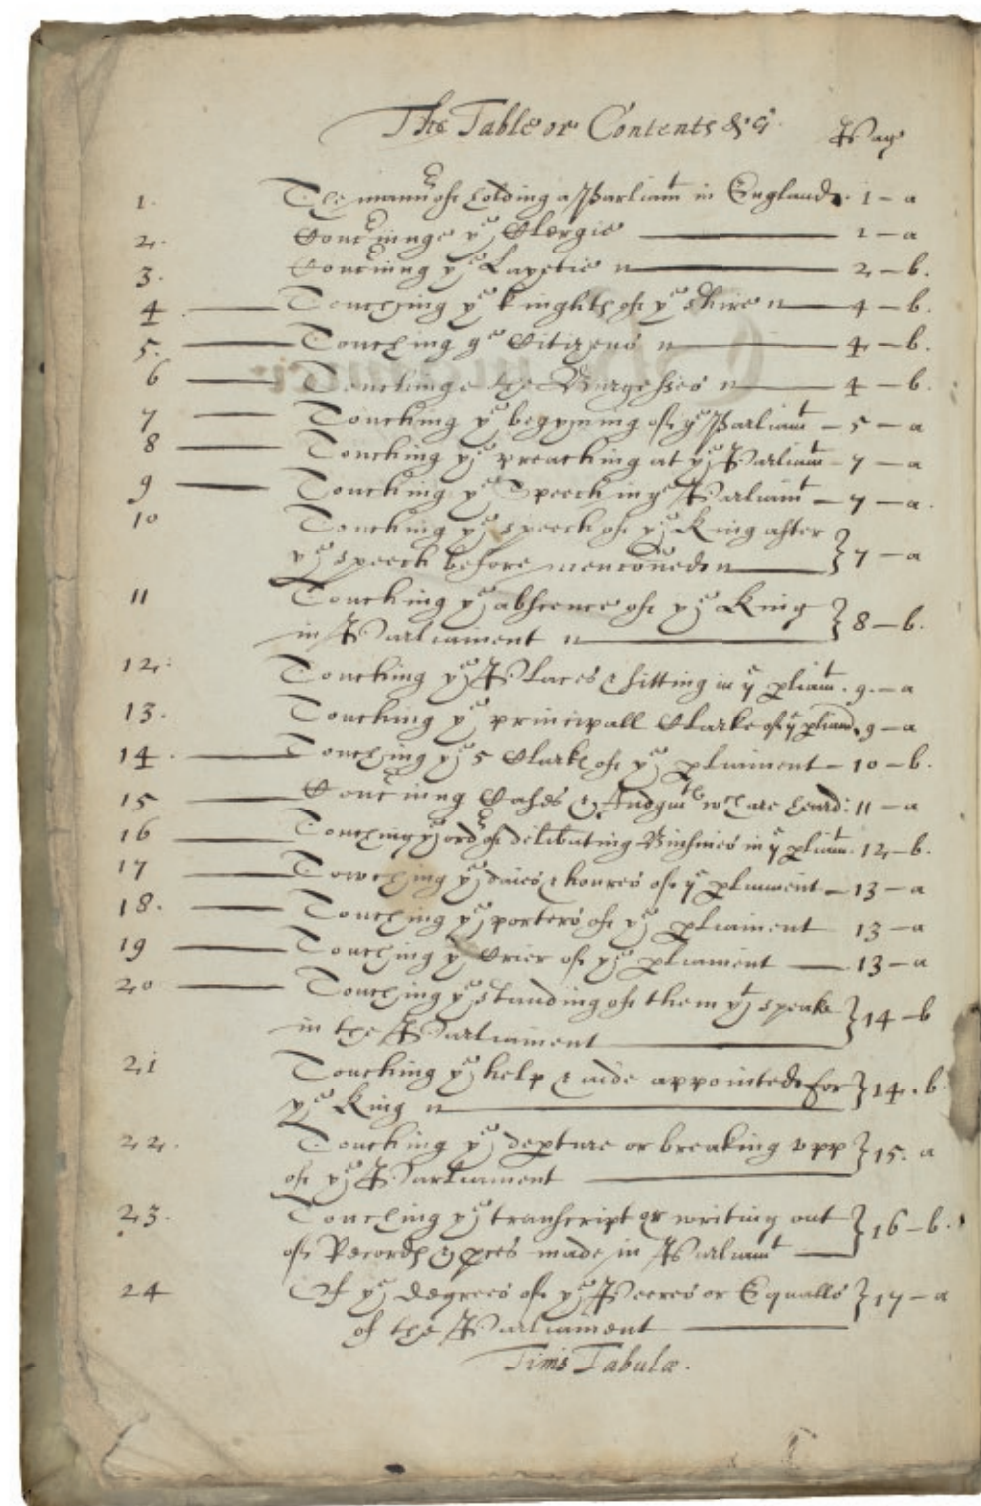 The Table or Contents &c. Pag
1. The mann^er of holding a Parliam^t in England. 1 – a
2. Conc^rninge y^e Clergie 1 – a
3. Conc^rning y^e Layetie 2 – b.
4. Touching y^e knights of y^e Shire 4 – b.
5. Touching y^e Citizens 4 – b.
6 Touchinge the Burgesses 4 – b.
7 Touching y^e begynning of y^e Parliam^t – 5 – a
8 Touching y^e preaching at y^e Parliam^t – 7 – a
9 Touching y^e Speech in y^e Parliam^t – 7 – a.
10 Touching y^e speech of y^e King after
y^e speech before menconed } 7 – a
11 Touching y^e absence of y^e King
in Parliament } 8 – b.
12. Touching y^e Places & sitting in y^e pliam^t. 9. – a
13. Touching y^e principall Clarke of y^e pliam^t. 9 – a
14. Touching y^e 5 Clarks of y^e pliament – 10 – b.
15 Conc^rning Cases & Judgm^ts w^ch are heard: 11 – a
16 Touching y^e ord^er of deliberating Businies in y^e pliam^t. 12 – b.
17 Towching y^e daies & houres of y^e pliament – 13 – a
18. Touching y^e porters of y^e pliament 13 – a
19 Touching y^e Crier of y^e pliament 13 – a
20 Touching y^e standing of them y^t speake
in the Parliament } 14 – b
21 Touching y^e help & aide appointed for
y^e King } 14. b
22. Touching y^e depture or breaking upp
of y^e Parliament } 15. a
23. Touching y^e transcript or writing out
of Records & pces made in Parliam^t } 16 – b.
24 Of y^e degrees of y^e Peeres or Equalls
of the Parliament } 17 – a
Finis Tabulæ.